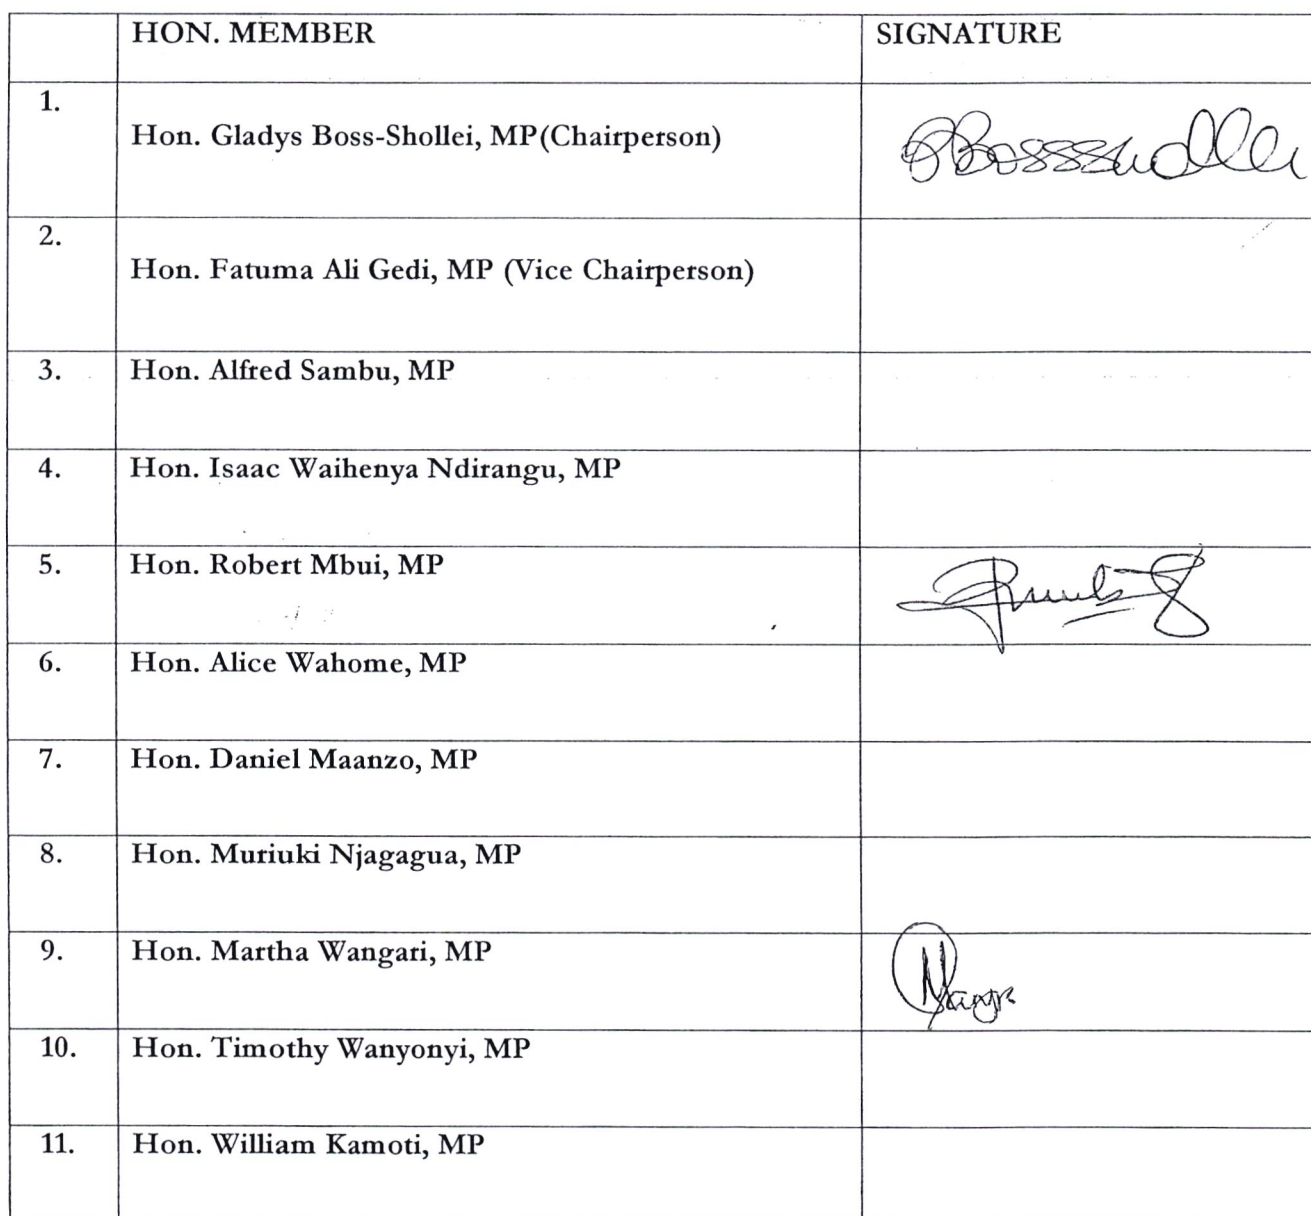 HON. MEMBER SIGNATURE
1. Hon. Gladys Boss-Shollei, MP(Chairperson) Bossshollei
2. Hon. Fatuma Ali Gedi, MP (Vice Chairperson)
3. Hon. Alfred Sambu, MP
4. Hon. Isaac Waihenya Ndirangu, MP
5. Hon. Robert Mbui, MP
6. Hon. Alice Wahome, MP
7. Hon. Daniel Maanzo, MP
8. Hon. Muriuki Njagagua, MP
9. Hon. Martha Wangari, MP
10. Hon. Timothy Wanyonyi, MP
11. Hon. William Kamoti, MP